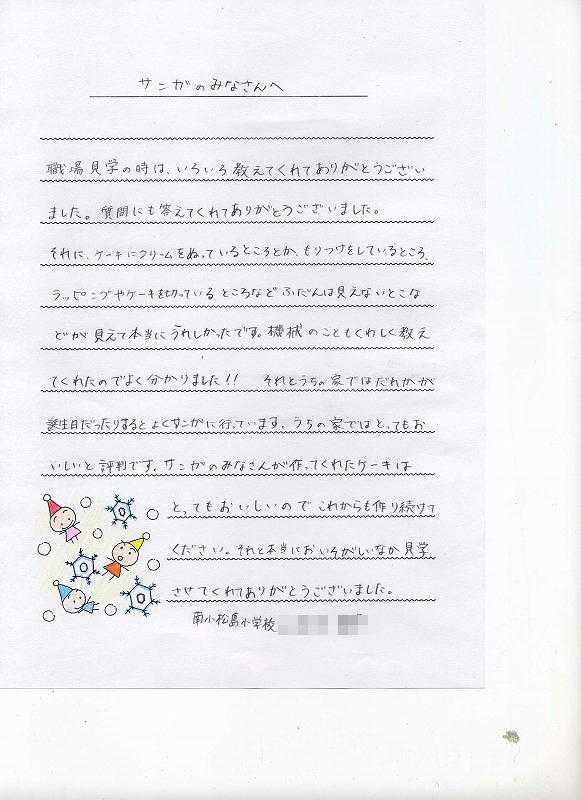 サンガのみなさんへ
職場見学の時は、いろいろ教えてくれてありがとうござい
ました。質問にも答えてくれてありがとうございました。
それに、ケーキにクリームをぬっているところとか、もりつけをしているところ、
ラッピングやケーキを切っているところなどふだんは見えないとこな
どが見えて本当にうれしかったです。機械のこともくわしく教え
てくれたのでよく分かりました!! それとうちの家ではだれかが
誕生日だったりするとよくサンガに行っています。うちの家ではとってもお
いしいと評判です。サンガのみなさんが作ってくれたケーキは
とってもおいしいのでこれからも作り続けて
ください。それと本当においそがしいなか見学
させてくれてありがとうございました。
南小松島小学校